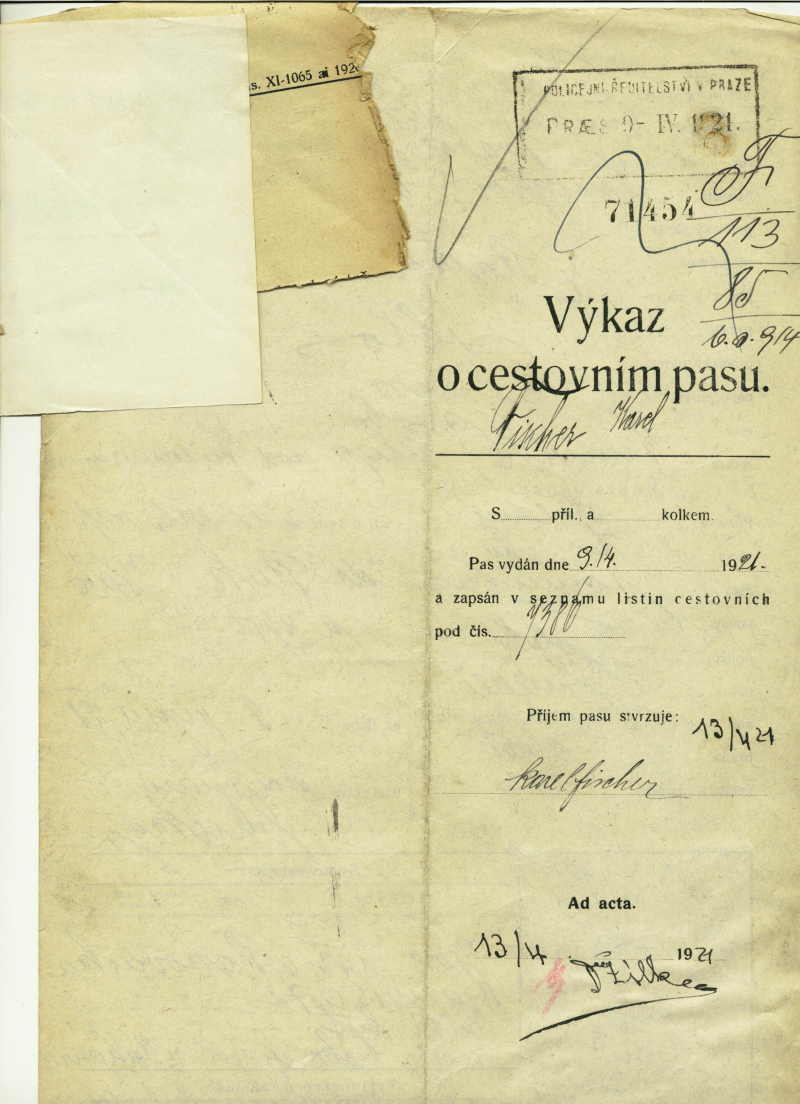 s. XI-1065 ai 192
POLICEJNÍ ŘEDITELSTVÍ V PRAZE
PRÆS 9- IV. 1921.
71454
F
113
85
914
Výkaz
o cestovním pasu.
Fischer Karel
S příl. a kolkem.
Pas vydán dne 9./4. 1921.
a zapsán v seznamu listin cestovních
pod čís. 7386
Příjem pasu stvrzuje:
13/4 21
Karel Fischer
Ad acta.
13/4 1921